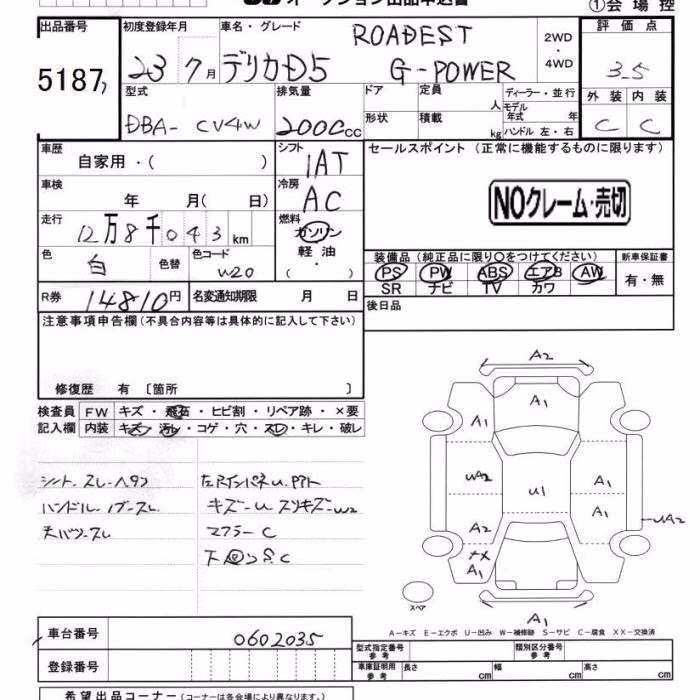 ①会場控
出品番号 初度登録年月 車名・グレード 評価点
5187 23 7月 デリカD5 ROADEST G-POWER 2WD・4WD 3.5
型式 排気量 ドア 定員 人 ディーラー・並行 外装 内装
DBA- CV4W 2000cc 形状 積載 kg モデル年式 年 ハンドル 左・右 C C
車歴 自家用・( ) シフト IAT セールスポイント (正常に機能するものに限ります)
車検 年 月( 日) 冷房 AC
NOクレーム・売切
走行 12万8千043km 燃料 ガソリン 軽油 ・( )
色 白 色替 色コード W20
装備品 (純正品に限り○をつけてください) 新車保証書
PS PW ABS エアB AW 有・無
SR ナビ TV カワ
R券 14810円 名変通知期限 月 日 後日品
注意事項申告欄 (不具合内容等は具体的に記入して下さい)
修復歴 有 〔箇所 〕
検査員 FW キズ・飛石・ヒビ割・リペア跡・×要
記入欄 内装 キズ・汚レ・コゲ・穴・スレ・キレ・破レ
シート スレ・ヘタリ
ハンドル・ノブ・スレ
キズ-U スリキズ-W2
マフラーC
下回りS.C
A2
A1
A1
UA2
U1
A1
A1
A2
UA2
XX
A1
A1
スペア
A1
A-キズ E-エクボ U-凹み W-補修跡 S-サビ C-腐食 XX-交換済
車台番号 0602035
型式指定番号 参考 類別区分番号 参考
登録番号
車庫証明用 参考 長さ cm 幅 cm 高さ cm
希望出品コーナー (コーナーは各会場により異なります。)